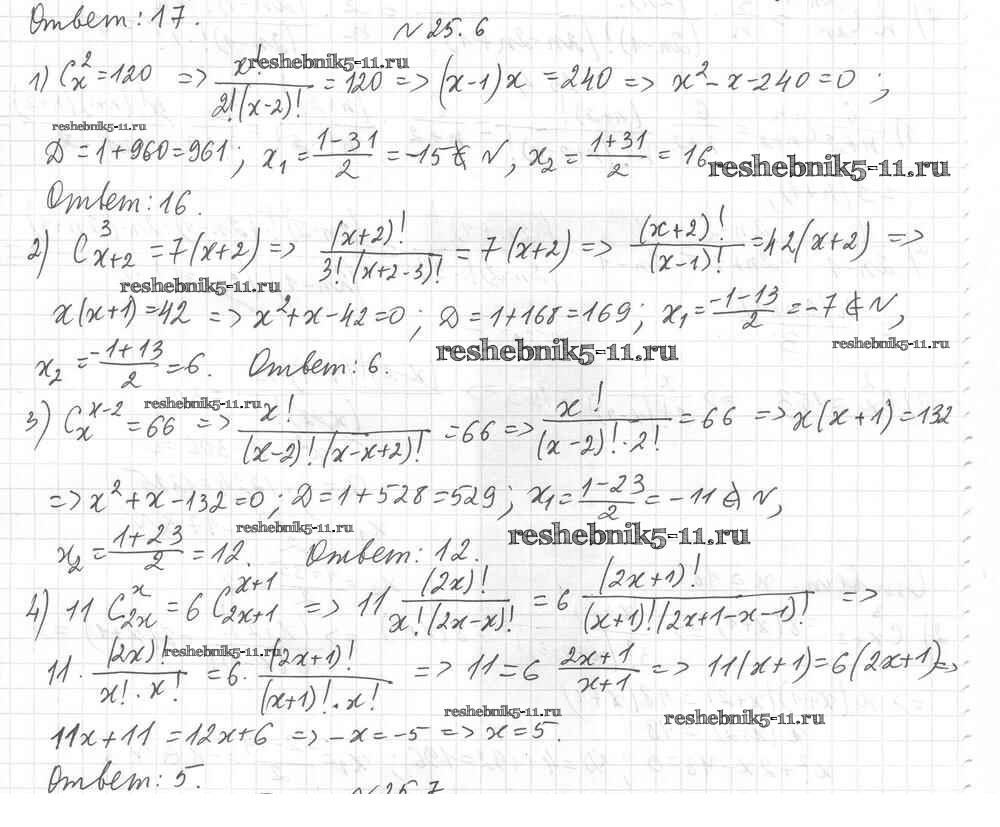 Ответ: 17.
№ 25.6
1) C_x^2 = 120 => x!/(2!(x-2)!) = 120 => (x-1)x = 240 => x^2 - x - 240 = 0;
reshebnik5-11.ru
reshebnik5-11.ru
Д = 1 + 960 = 961; x_1 = (1-31)/2 = -15 ∉ N, x_2 = (1+31)/2 = 16
reshebnik5-11.ru
Ответ: 16.
2) C_{x+2}^3 = 7(x+2) => (x+2)!/(3!(x+2-3)!) = 7(x+2) => (x+2)!/(x-1)! = 42(x+2) =>
reshebnik5-11.ru
x(x+1) = 42 => x^2 + x - 42 = 0; Д = 1 + 168 = 169; x_1 = (-1-13)/2 = -7 ∉ N,
reshebnik5-11.ru
reshebnik5-11.ru
x_2 = (-1+13)/2 = 6. Ответ: 6.
reshebnik5-11.ru
3) C_x^{x-2} = 66 => x!/((x-2)!(x-x+2)!) = 66 => x!/((x-2)!·2!) = 66 => x(x+1) = 132
=> x^2 + x - 132 = 0; Д = 1 + 528 = 529; x_1 = (1-23)/2 = -11 ∉ N,
reshebnik5-11.ru
reshebnik5-11.ru
x_2 = (1+23)/2 = 12. Ответ: 12.
4) 11 C_{2x}^x = 6 C_{2x+1}^{x+1} => 11 (2x)!/(x!(2x-x)!) = 6 (2x+1)!/((x+1)!(2x+1-x-1)!) =>
reshebnik5-11.ru
11 · (2x)!/(x!·x!) = 6 · (2x+1)!/((x+1)!·x!) => 11 = 6 (2x+1)/(x+1) => 11(x+1) = 6(2x+1) =>
reshebnik5-11.ru
reshebnik5-11.ru
11x + 11 = 12x + 6 => -x = -5 => x = 5.
Ответ: 5.
№ 25.7